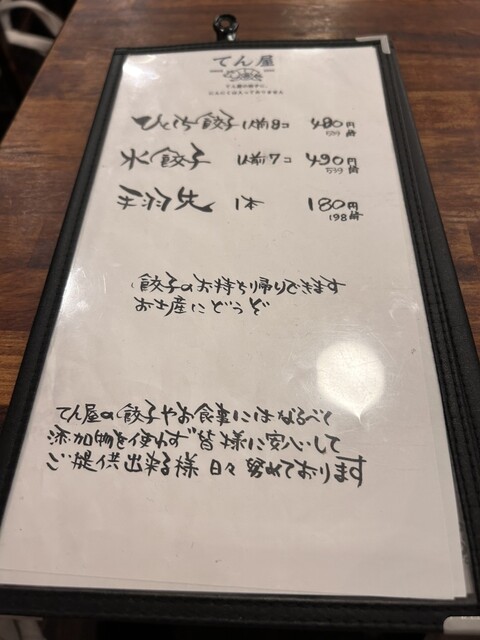 てん屋
てん屋の餃子に、
にんにくは入っておりません
ひとくち餃子 1人前8コ 480円
水餃子 1人前7コ 490円
539
手羽先 1本 180円
198
餃子のお持ち帰りできます
お土産にどうぞ
てん屋の餃子やお食事にはなるべく
添加物を使わず皆様に安心して
ご提供出来る様 日々努めております